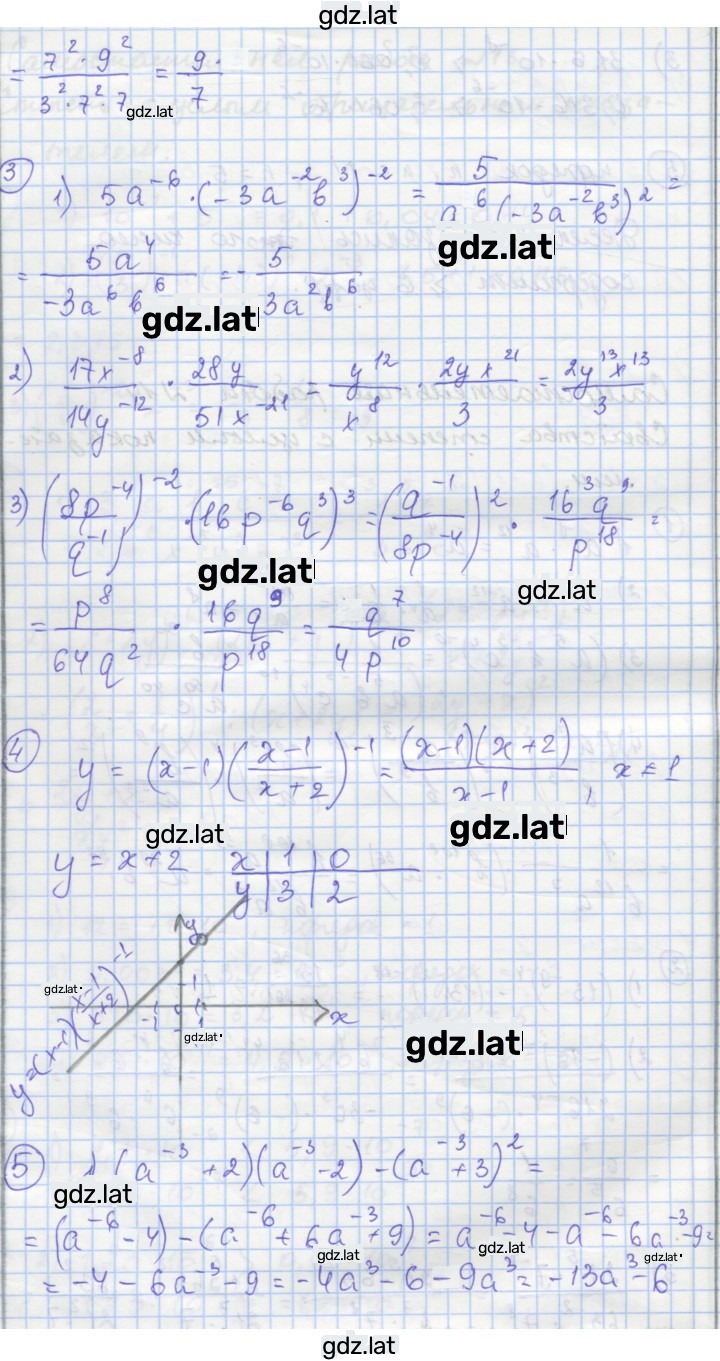 gdz.lat
= 7² · 9² / 3² · 7² · 7 = 9 · / 7
gdz.lat
3 1) 5a⁻⁶ · (-3a⁻²b³)⁻² = 5 / a⁶(-3a⁻²b³)² =
gdz.lat
= 5a⁴ / -3a⁶b⁶ = - 5 / 3a²b⁶
gdz.lat
2) 17x⁻⁸ / 14y⁻¹² · 28y / 51x⁻²¹ = y¹² / x⁸ · 2yx²¹ / 3 = 2y¹³x¹³ / 3
3) (8p⁻⁴ / q⁻¹)⁻² · (16p⁻⁶q³)³ = (q⁻¹ / 8p⁻⁴)² · 16³q⁹ / p¹⁸ =
gdz.lat gdz.lat
= p⁸ / 64q² · 16q⁹ / p¹⁸ = q⁷ / 4p¹⁰
4 y = (x-1)(x-1 / x+2)⁻¹ = (x-1)(x+2) / x-1, x ≠ 1
gdz.lat gdz.lat
y = x+2 x | 1 | 0
y | 3 | 2
y
gdz.lat
y=(x-1)(x-1 / x+2)⁻¹
1
-1 1 x
-1
gdz.lat gdz.lat
5 1) (a⁻³ + 2)(a⁻³ - 2) - (a⁻³ + 3)² =
gdz.lat
= (a⁻⁶ - 4) - (a⁻⁶ + 6a⁻³ + 9) = a⁻⁶ - 4 - a⁻⁶ - 6a⁻³ - 9 =
gdz.lat gdz.lat gdz.lat
= -4 - 6a⁻³ - 9 = -4a³ - 6 - 9a³ = -13a³ - 6
gdz.lat